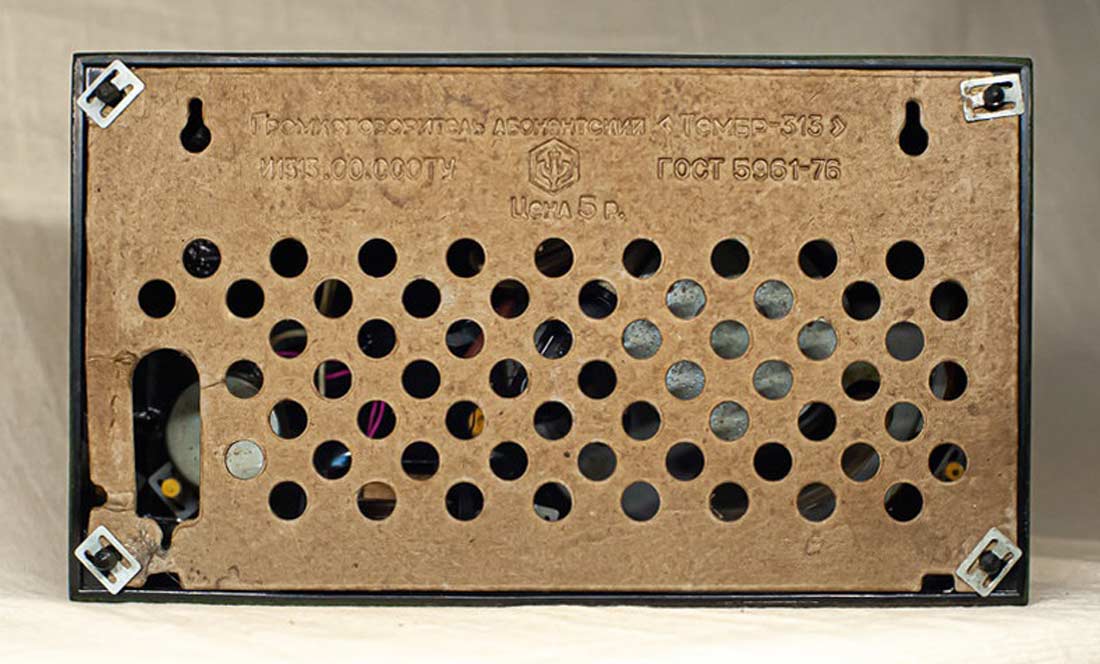 Громкоговоритель абонентский «Тембр-313»
И313.00.000ТУ ГОСТ 5961-76
Цена 5 р.